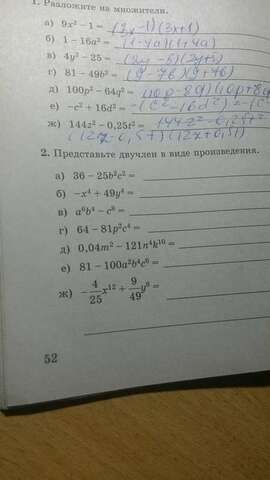 1. Разложите на множители.
а) 9x² − 1 = (3x−1)(3x+1)
б) 1 − 16a² = (1−4a)(1+4a)
в) 4y² − 25 = (2y−5)(2y+5)
г) 81 − 49b² = (9−7b)(9+7b)
д) 100p² − 64q² = (10p−8q)(10p+8q
е) −c² + 16d² = −(c²−16d²) = −(c
ж) 144z² − 0,25t² = 144z²−0,25t²=
(12z−0,5t)(12z+0,5t)
2. Представьте двучлен в виде произведения.
а) 36 − 25b²c² =
б) −x⁴ + 49y⁴ =
в) a⁶b⁴ − c⁸ =
г) 64 − 81p²c⁴ =
д) 0,04m² − 121n⁴k¹⁰ =
е) 81 − 100a²b⁴c⁶ =
ж) −4/25 x¹² + 9/49 y⁶ =
52